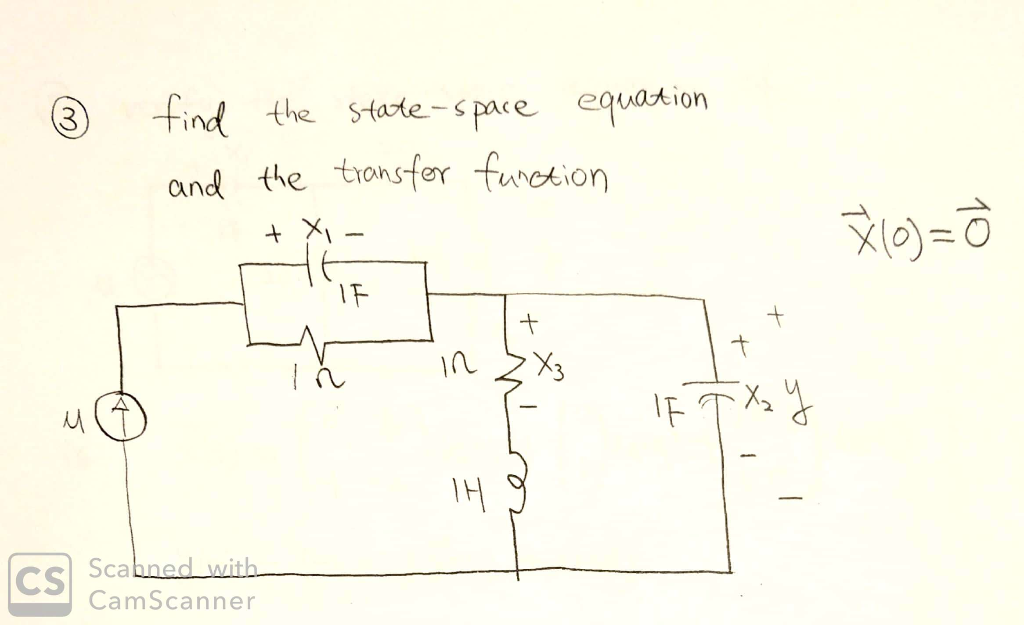 ③ find the state-space equation
and the transfer function
x⃗(0)=0⃗
+ X₁ -
1F
1Ω
u
+
1Ω X₃
-
1H
+ +
1F X₂ y
- -
CS Scanned with
CamScanner